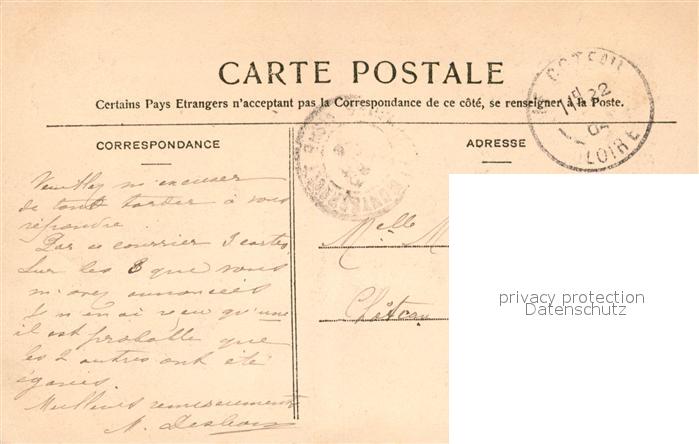 CARTE POSTALE
Certains Pays Etrangers n'acceptant pas la Correspondance de ce côté, se renseigner à la Poste.
CORRESPONDANCE
ADRESSE
COTEAU
22
LOIRE
Veuillez m'excuser
de tant tarder à vous
répondre.
Par ce courrier 3 cartes
sur les que vous
m'avez annoncées
Je n'en ai reçu qu'une
il est probable que
les 2 autres ont été
égarées.
Meilleurs remerciements
Melle M
Château
privacy protection
Datenschutz